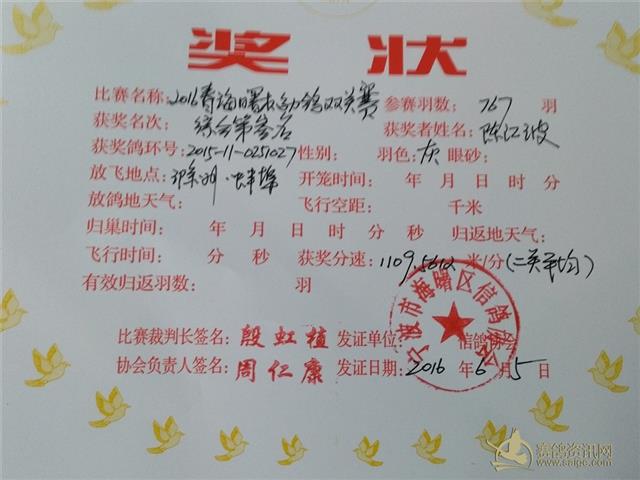 奖状
比赛名称：2016青海曙长幼鸽双关赛 参赛羽数：767 羽
获奖名次：综合第叁名 获奖者姓名：陈江波
获奖鸽环号：2015-11-0251027 性别： 羽色：灰 眼砂：
放飞地点：滁州·蚌埠 开笼时间： 年 月 日 时 分
放鸽地天气： 飞行空距： 千米
归巢时间： 年 月 日 时 分 秒 归返地天气：
飞行时间： 分 秒 获奖分速：1109.5612 米/分（二关平均）
有效归返羽数： 羽
比赛裁判长签名：殷虹植 发证单位： 信鸽协会
协会负责人签名：周仁康 发证日期：2016 年 6 月 5 日
宁波市海曙区信鸽协会
赛鸽资讯网
www.saige.com